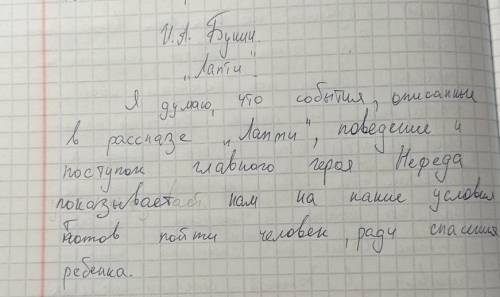 И. А. Бунин.
„Лапти".
Я думаю, что события, описанные
в рассказе „Лапти", поведение и
поступок главного героя Нефеда
показывает нам на какие условия
готов пойти человек, ради спасения
ребенка.